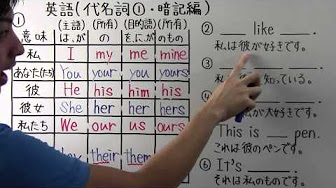 英語(代名詞①・暗記編)
①
意味 (主語)は、が (所有)の (目的語)を、に、が (所有)のもの
私 I my me mine
あなた(たち) You your you yours
彼 He his him his
彼女 She her her hers
私たち We our us ours
they their them
② like .
私は彼が好きです。
③
知っている。
④
が大好きです。
This is pen.
これは彼のペンです。
⑥ It's .
それは私のものです。